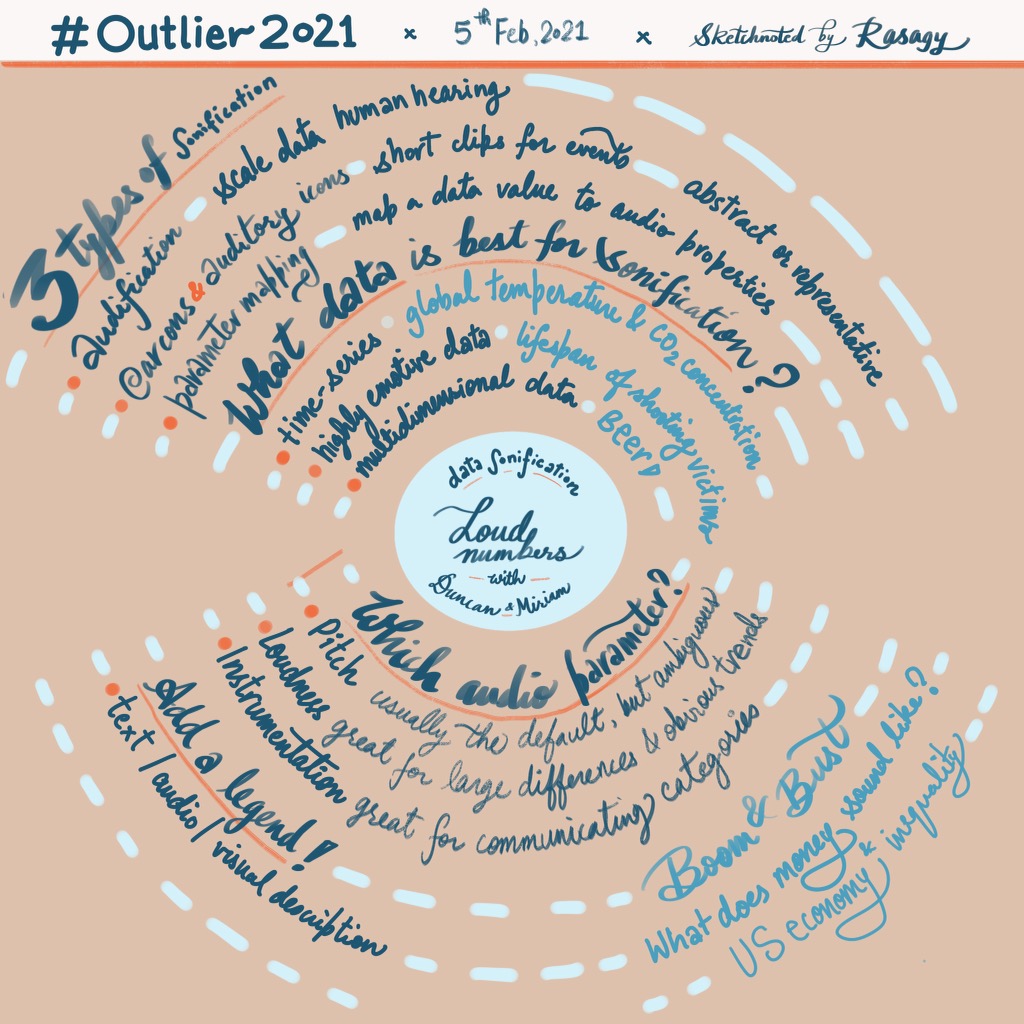 #Outlier2021 x 5th Feb, 2021 x Sketchnoted by Rasagy
3 types of Sonification
audification scale data human hearing
Earcons & auditory icons short clips for events abstract or representative
parameter mapping map a data value to audio properties
What data is best for Sonification?
time-series global temperature & CO2 concentration
highly emotive data lifespan of shooting victims
multidimensional data BEER!
data Sonification
Loud
numbers
with
Duncan & Miriam
Which audio parameter?
Pitch usually the default, but ambiguous
Loudness great for large differences & obvious trends
Instrumentation great for communicating categories
Add a legend!
text / audio / visual description
Boom & Bust
What does money sound like?
US economy & inequality